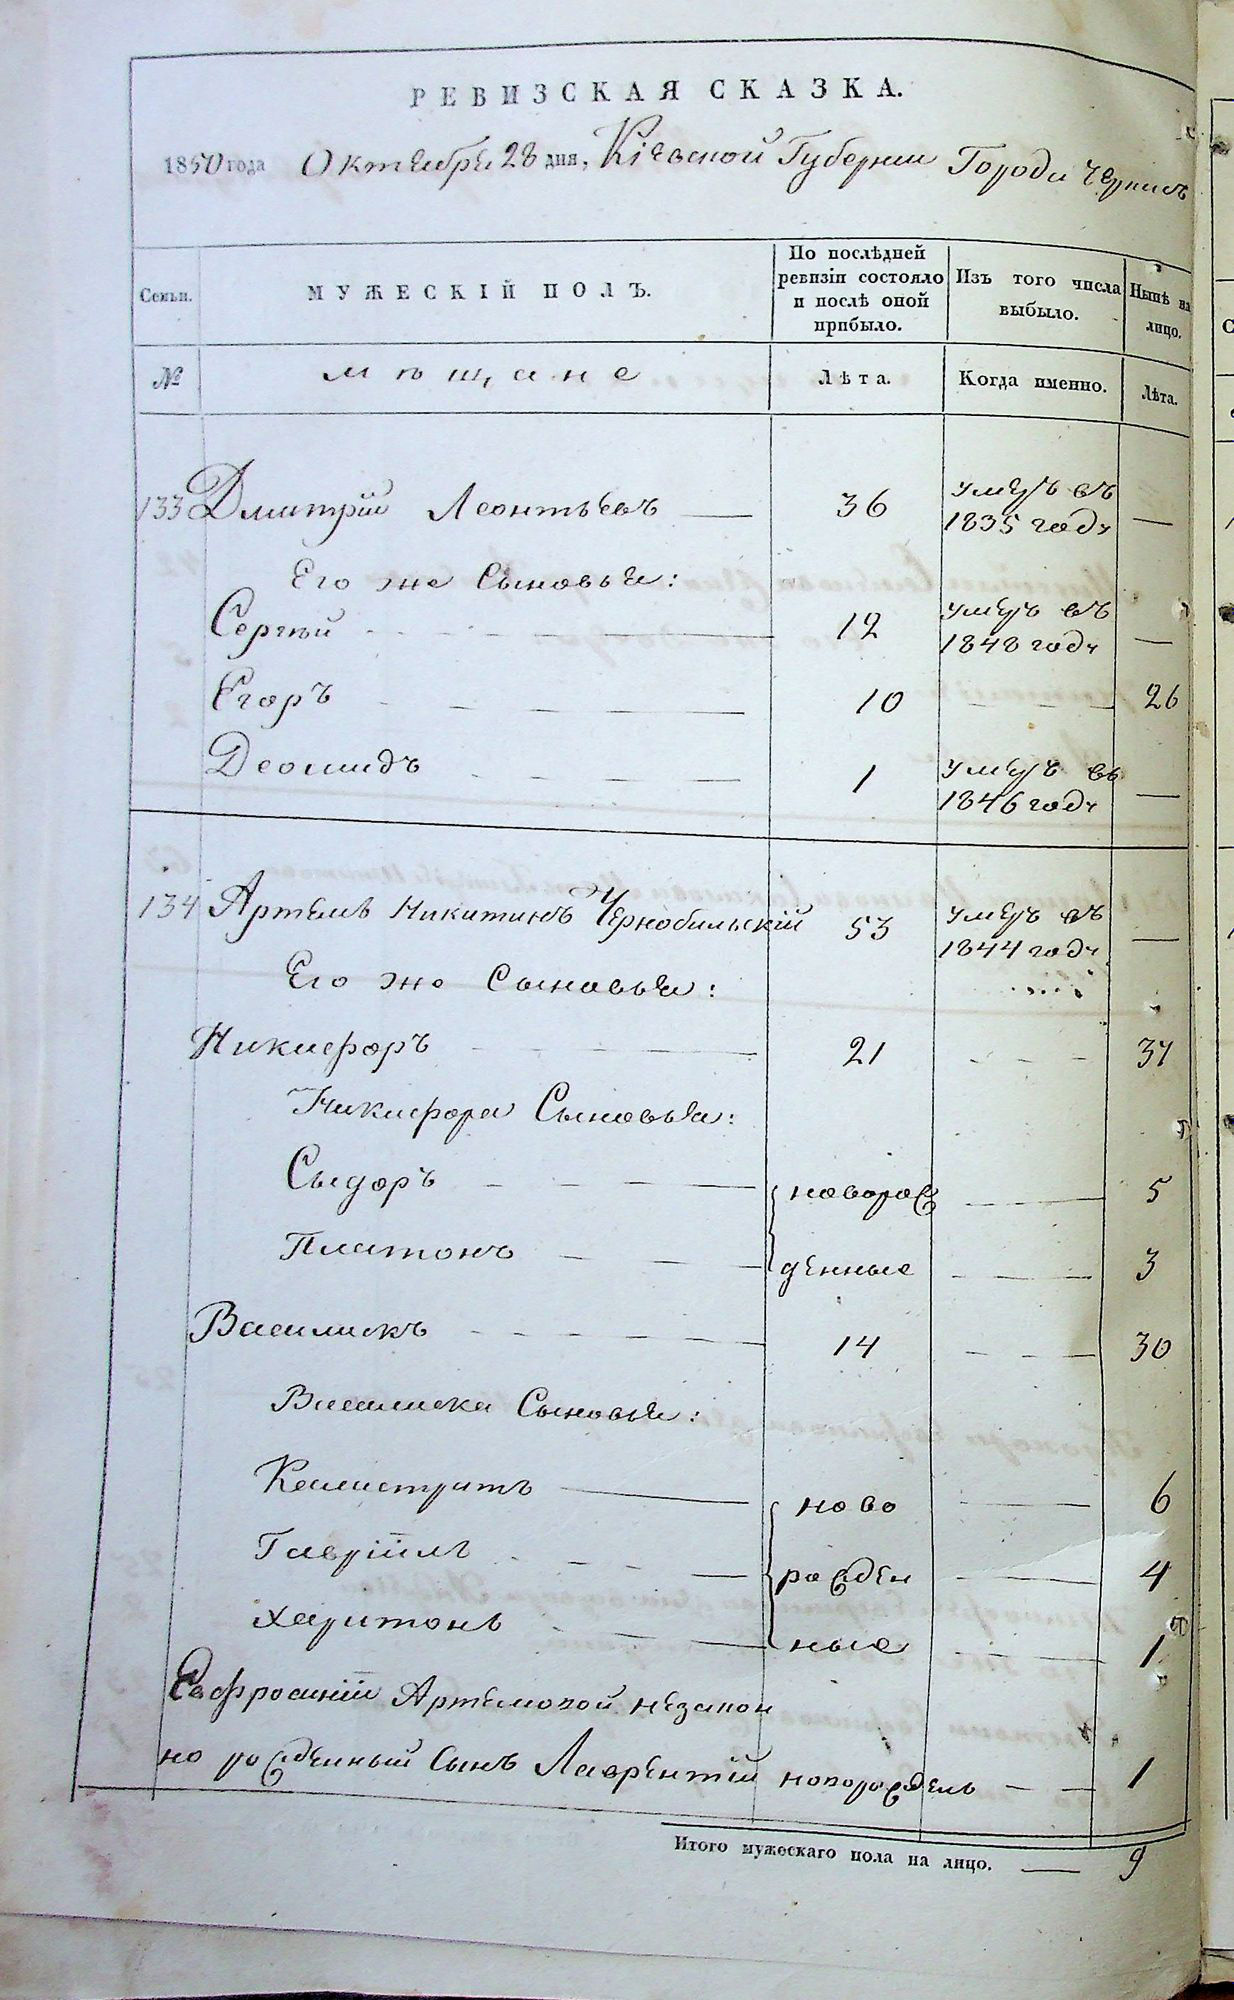 РЕВИЗСКАЯ СКАЗКА.
1850 года Октября 28 дня, Кіевской Губерніи Города
Семьи. МУЖЕСКІЙ ПОЛЪ. По послѣдней ревизіи состояло и послѣ оной прибыло. Изъ того числа выбыло. Нынѣ на лицо.
№ мѣщане Лѣта. Когда именно. Лѣта.
133 Дмитрій Леонтьевъ — 36 умеръ въ 1835 году —
Его же Сыновья:
Сергѣй - - - 12 умеръ въ 1848 году —
Егоръ - - - 10 - - - 26
Деомидъ - - - 1 умеръ въ 1846 году —
134 Артемъ Никитинъ Чернобильскій 53 умеръ въ 1844 году —
Его же Сыновья:
Никифоръ - - - 21 - - - 37
Никифора Сыновья:
Сыдоръ - - - новорож — 5
Платонъ - - - денные — 3
Василискъ - - - 14 - - - 30
Василиска Сыновья:
Калистратъ — ново — 6
Гавріилъ - - - рожден — 4
Харитонъ - - - ные — 1
Евфросиніи Артемовой незакон
но рожденный Сынъ Лаврентій новорожденъ — — 1
Итого мужескаго пола на лицо. — 9